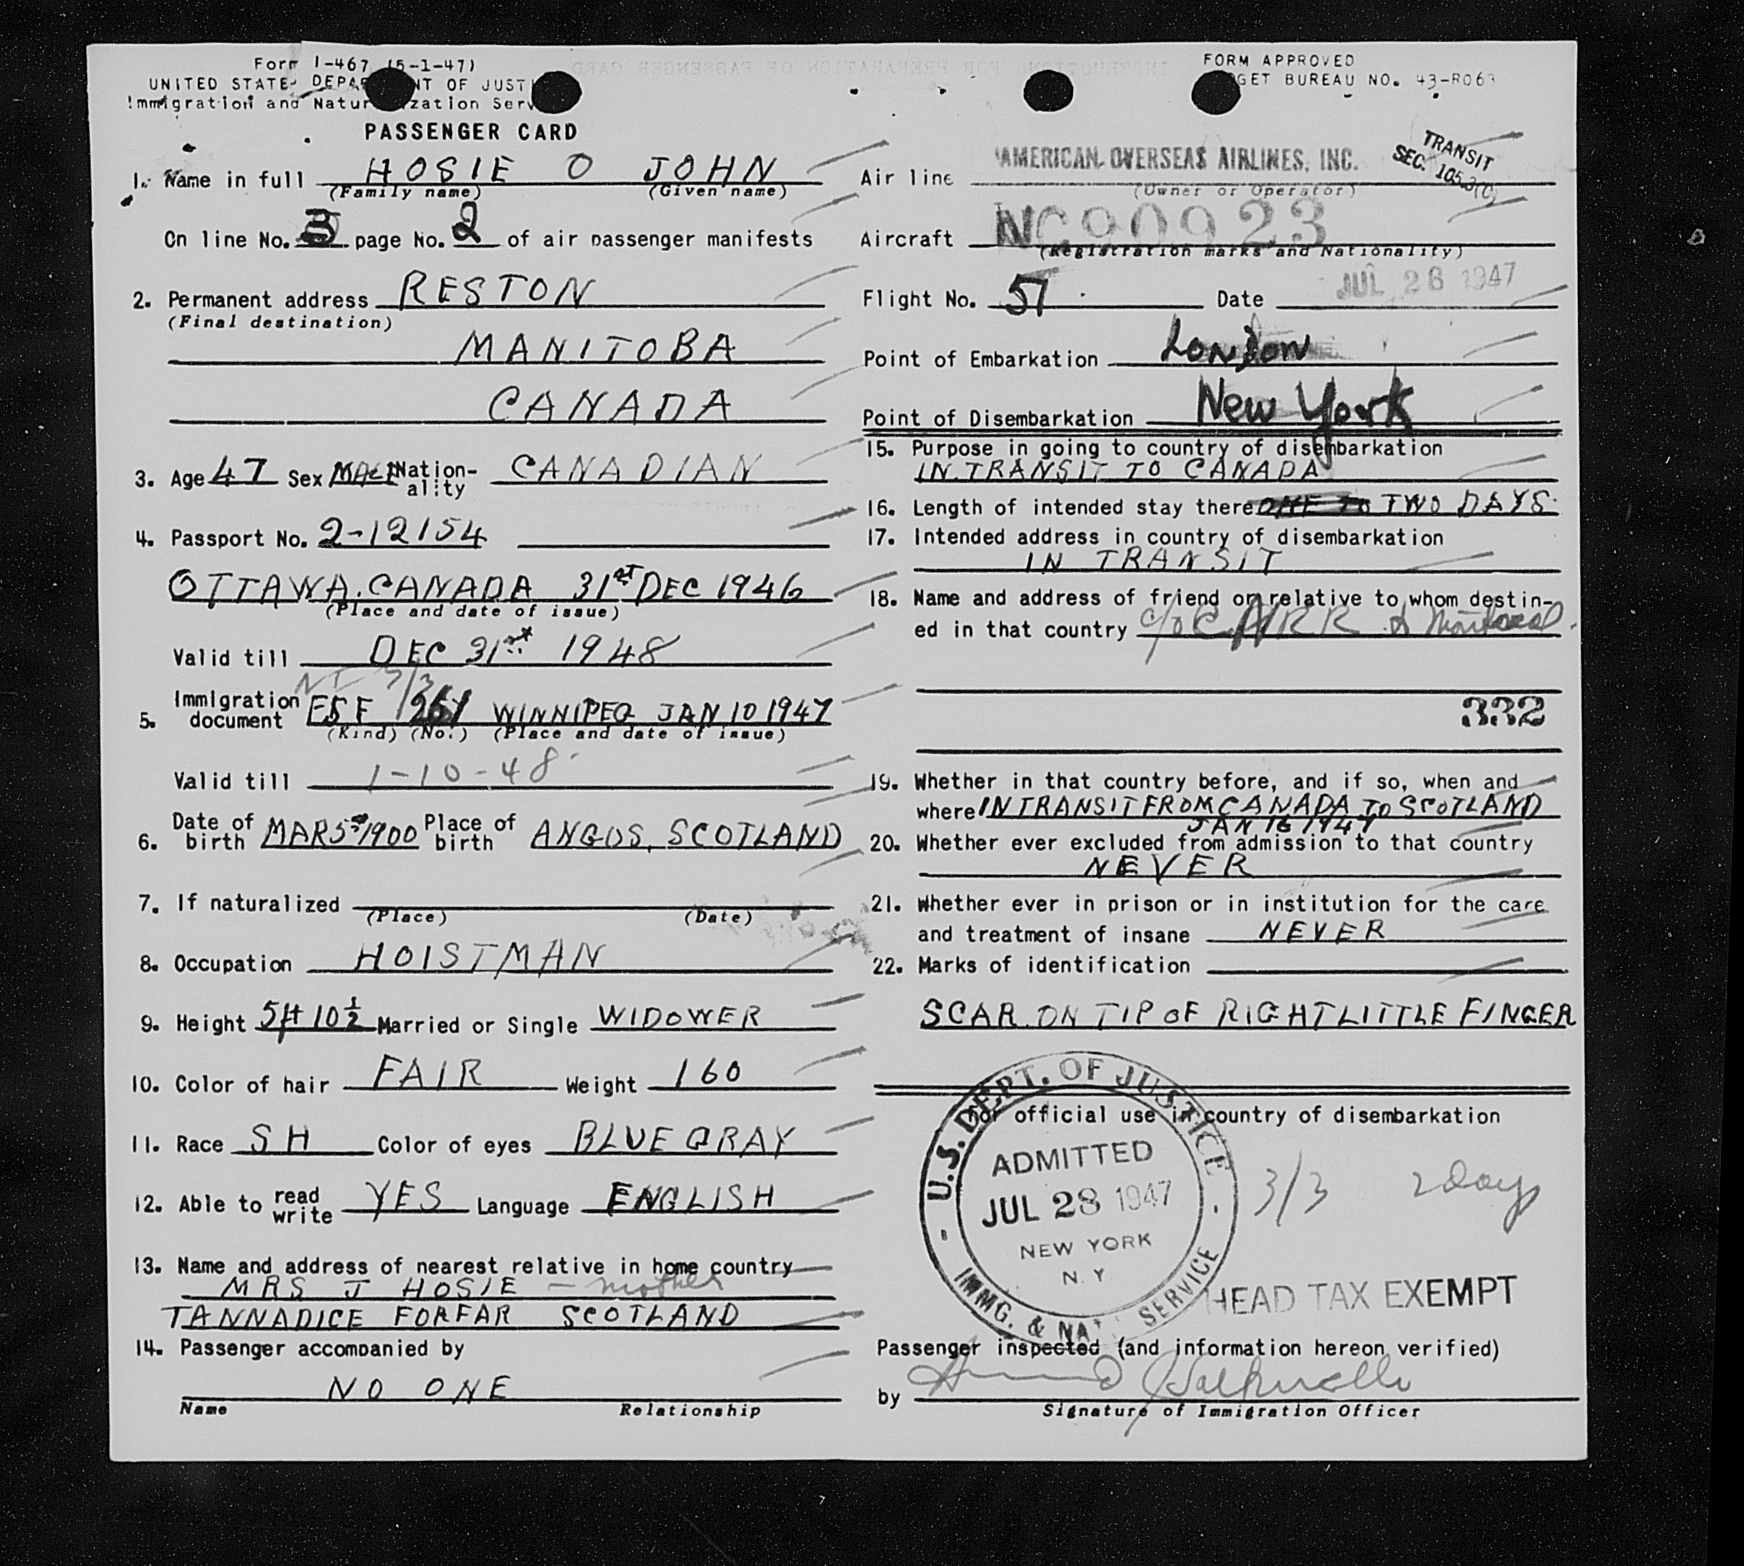 Form I-467 (5-1-47)
UNITED STATES DEPARTMENT OF JUSTICE
Immigration and Naturalization Service
PASSENGER CARD
1. Name in full HOSIE O JOHN
(Family name) (Given name)
On line No. 3 page No. 2 of air passenger manifests
2. Permanent address RESTON
(Final destination)
MANITOBA
CANADA
3. Age 47 Sex MALE Nationality CANADIAN
4. Passport No. 2-12154
OTTAWA. CANADA 31ST DEC 1946
(Place and date of issue)
Valid till DEC 31st 1948
NI 3/3
5. Immigration document ESF 1261 WINNIPEG JAN 10 1947
(Kind) (No.) (Place and date of issue)
Valid till 1-10-48
6. Date of birth MAR 5 1900 Place of birth ANGUS, SCOTLAND
7. If naturalized
(Place) (Date)
8. Occupation HOISTMAN
9. Height 5ft 10½ Married or Single WIDOWER
10. Color of hair FAIR Weight 160
11. Race SH Color of eyes BLUE GRAY
12. Able to read write YES Language ENGLISH
13. Name and address of nearest relative in home country
MRS J HOSIE - mother
TANNADICE FORFAR SCOTLAND
14. Passenger accompanied by
NO ONE
Name Relationship
FORM APPROVED
BUDGET BUREAU NO. 43-R063
TRANSIT
SEC. 105.3(C)
Air line AMERICAN OVERSEAS AIRLINES, INC.
(Owner or Operator)
Aircraft NC90923
(Registration marks and Nationality)
Flight No. 51 Date JUL 28 1947
Point of Embarkation London
Point of Disembarkation New York
15. Purpose in going to country of disembarkation
IN TRANSIT TO CANADA
16. Length of intended stay there ONE TO TWO DAYS
17. Intended address in country of disembarkation
IN TRANSIT
18. Name and address of friend or relative to whom destin-
ed in that country c/o C.N.R.R. Montreal
332
19. Whether in that country before, and if so, when and
where IN TRANSIT FROM CANADA TO SCOTLAND
JAN 16 1947
20. Whether ever excluded from admission to that country
NEVER
21. Whether ever in prison or in institution for the care
and treatment of insane NEVER
22. Marks of identification
SCAR ON TIP OF RIGHT LITTLE FINGER
For official use in country of disembarkation
U.S. DEPT. OF JUSTICE
ADMITTED
JUL 28 1947
NEW YORK
N.Y.
IMMG. & NAT. SERVICE
3/3 2 Days
HEAD TAX EXEMPT
Passenger inspected (and information hereon verified)
by
Signature of Immigration Officer